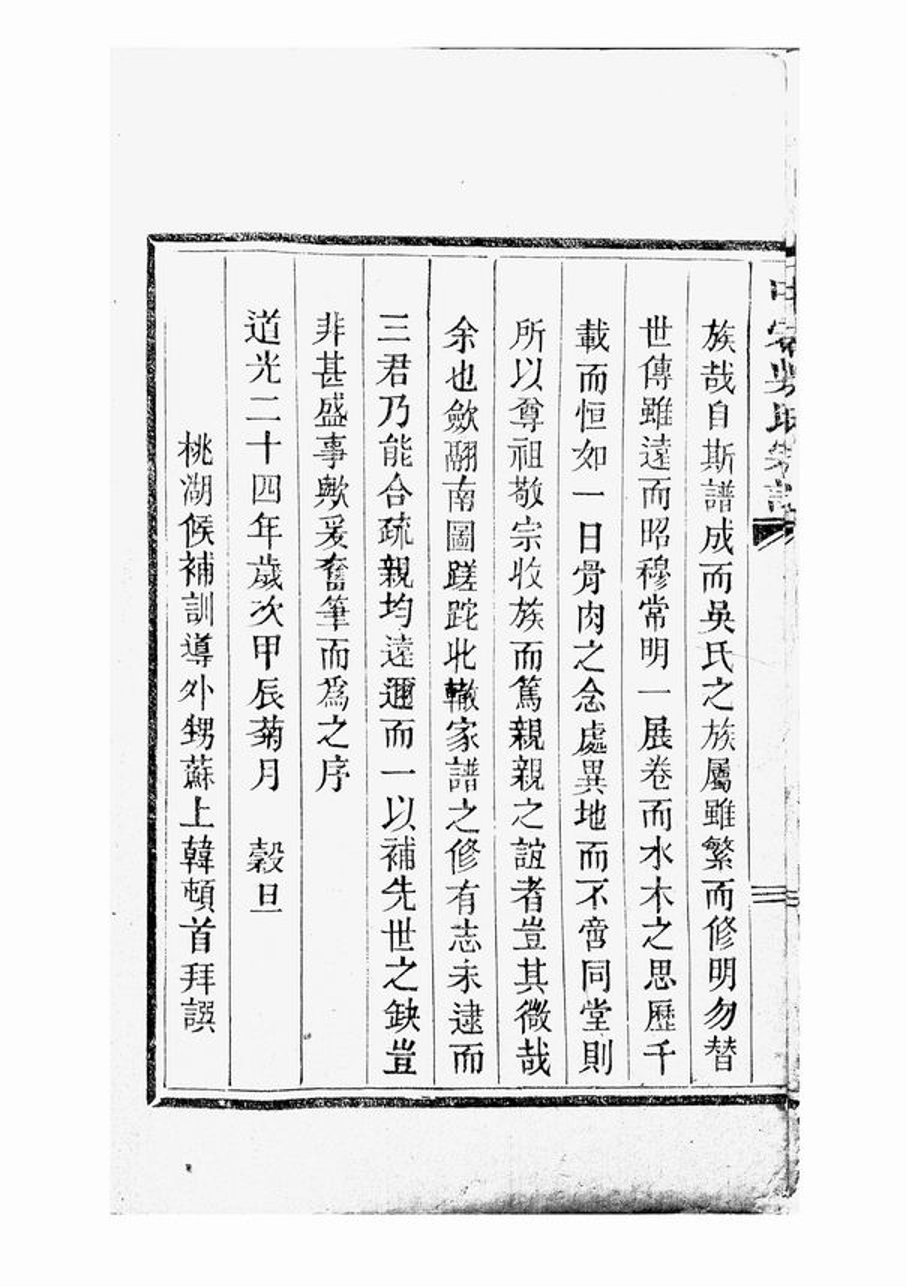 族哉自斯譜成而吳氏之族屬雖繁而修明勿替
世傳雖遠而昭穆常明一展卷而水木之思歷千
載而恒如一日骨肉之念處異地而不啻同堂則
所以尊祖敬宗收族而篤親親之誼者豈其微哉
余也歛翮南圖蹉跎北轍家譜之修有志未逮而
三君乃能合疏親均遠邇而一以補先世之缺豈
非甚盛事歟爰奮筆而為之序
道光二十四年歲次甲辰菊月　穀旦
桃湖候補訓導外甥蘇上韓頓首拜譔